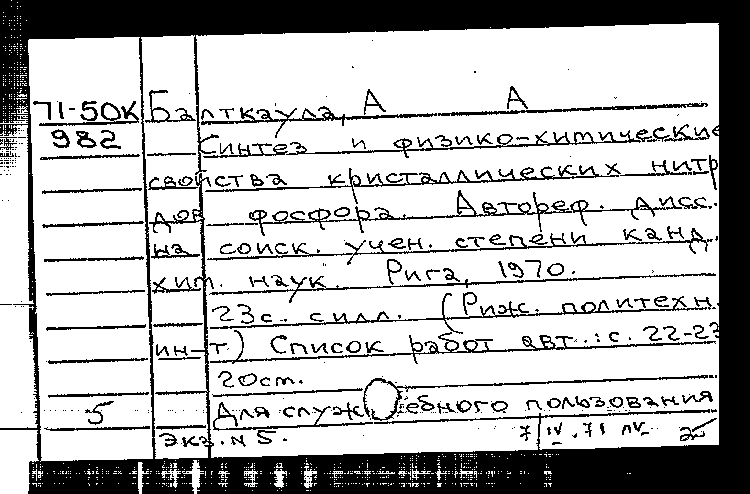 71-50К Балткаула, А А
982 Синтез и физико-химические
свойства кристаллических нитр
дов фосфора. Автореф. дисс.
на соиск. учен. степени канд.
хим. наук. Рига, 1970.
23с. силл. (Риж. политехн.
ин-т) Список работ авт.: с. 22-23
20см.
5 Для служебного пользования
экз. N 5. 7/IV.71